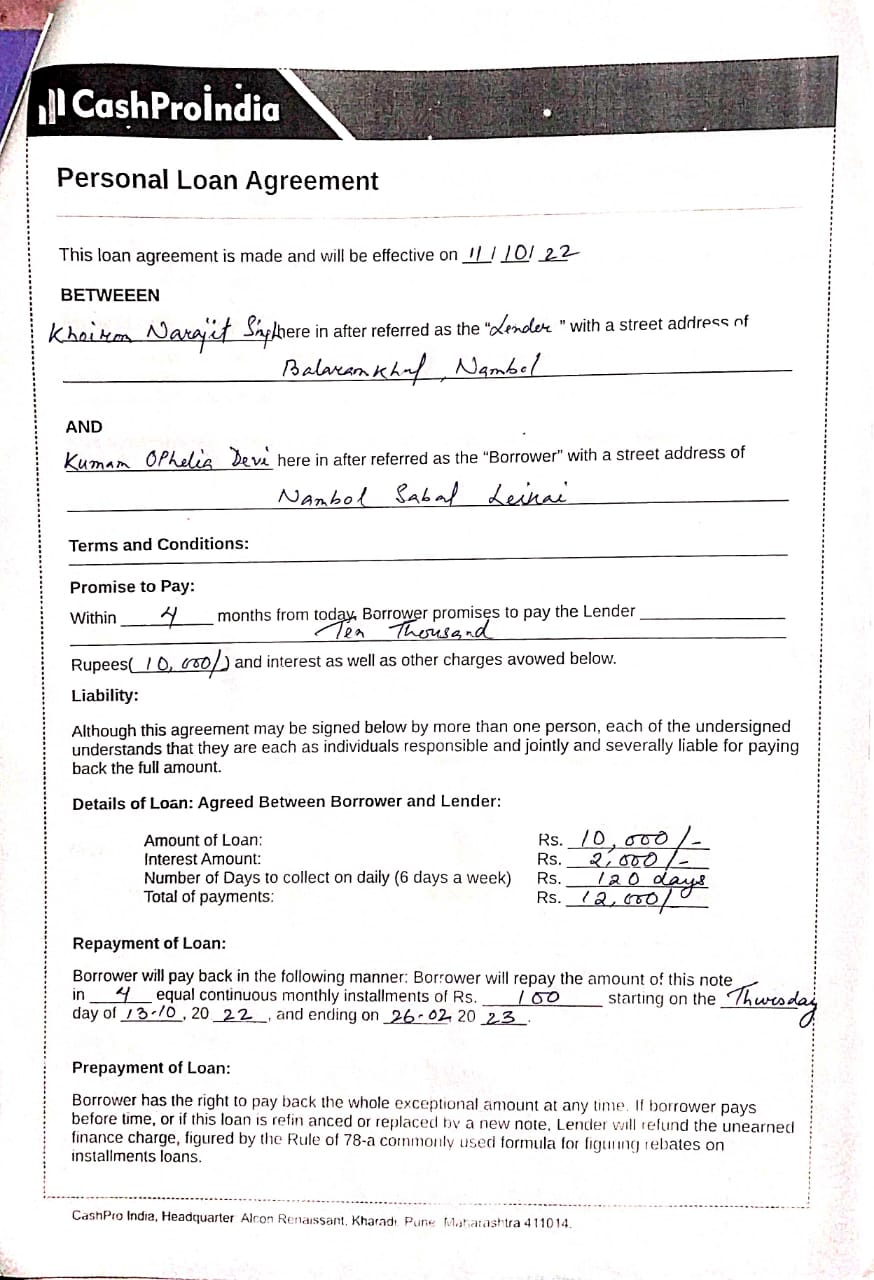 CashProIndia
Personal Loan Agreement
This loan agreement is made and will be effective on 11/10/22
BETWEEEN
Khoirom Narajit Singh here in after referred as the "Lender" with a street address of
Balaram Khul, Nambol
AND
Kumam Ophelia Devi here in after referred as the "Borrower" with a street address of
Nambol Sabal Leikai
Terms and Conditions:
Promise to Pay:
Within 4 months from today, Borrower promises to pay the Lender
Ten Thousand
Rupees( 10,000/) and interest as well as other charges avowed below.
Liability:
Although this agreement may be signed below by more than one person, each of the undersigned
understands that they are each as individuals responsible and jointly and severally liable for paying
back the full amount.
Details of Loan: Agreed Between Borrower and Lender:
Amount of Loan: Rs. 10,000/-
Interest Amount: Rs. 2,000/-
Number of Days to collect on daily (6 days a week) Rs. 120 days
Total of payments: Rs. 12,000/
Repayment of Loan:
Borrower will pay back in the following manner: Borrower will repay the amount of this note
in 4 equal continuous monthly installments of Rs. 100 starting on the Thursday
day of 13-10, 20 22, and ending on 26-02 20 23.
Prepayment of Loan:
Borrower has the right to pay back the whole exceptional amount at any time. If borrower pays
before time, or if this loan is refin anced or replaced by a new note, Lender will refund the unearned
finance charge, figured by the Rule of 78-a commonly used formula for figuring rebates on
installments loans.
CashPro India, Headquarter Alcon Renaissant, Kharadi Pune Maharashtra 411014.